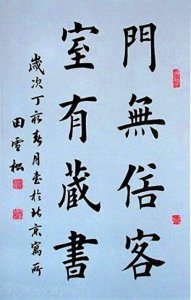 門無俗客
室有藏書
歲次丁亥春月書於北京寓所
田雪松